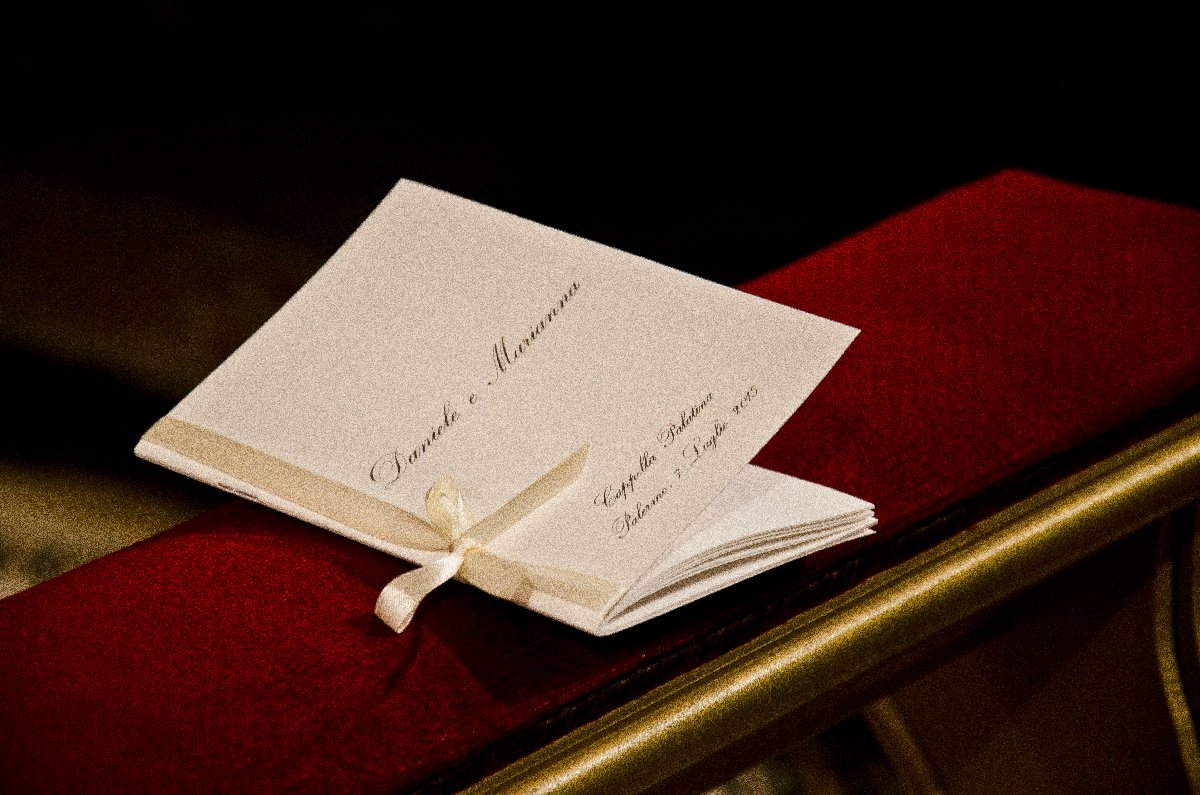 Daniele e Marianna
Cappella Palatina
Palermo, 7 Luglio 2015